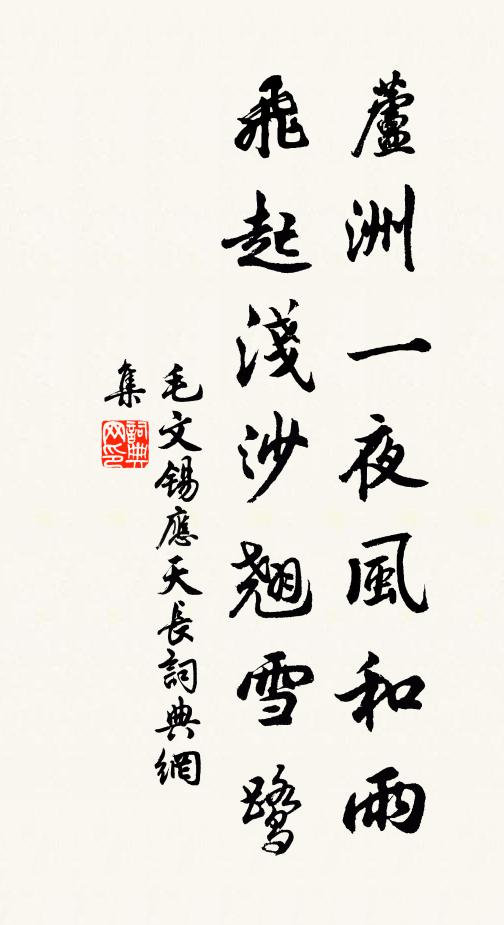 蘆洲一夜風和雨
飛起淺沙翹雪鷺
毛文錫應天長詞典網
集
詞典
网印